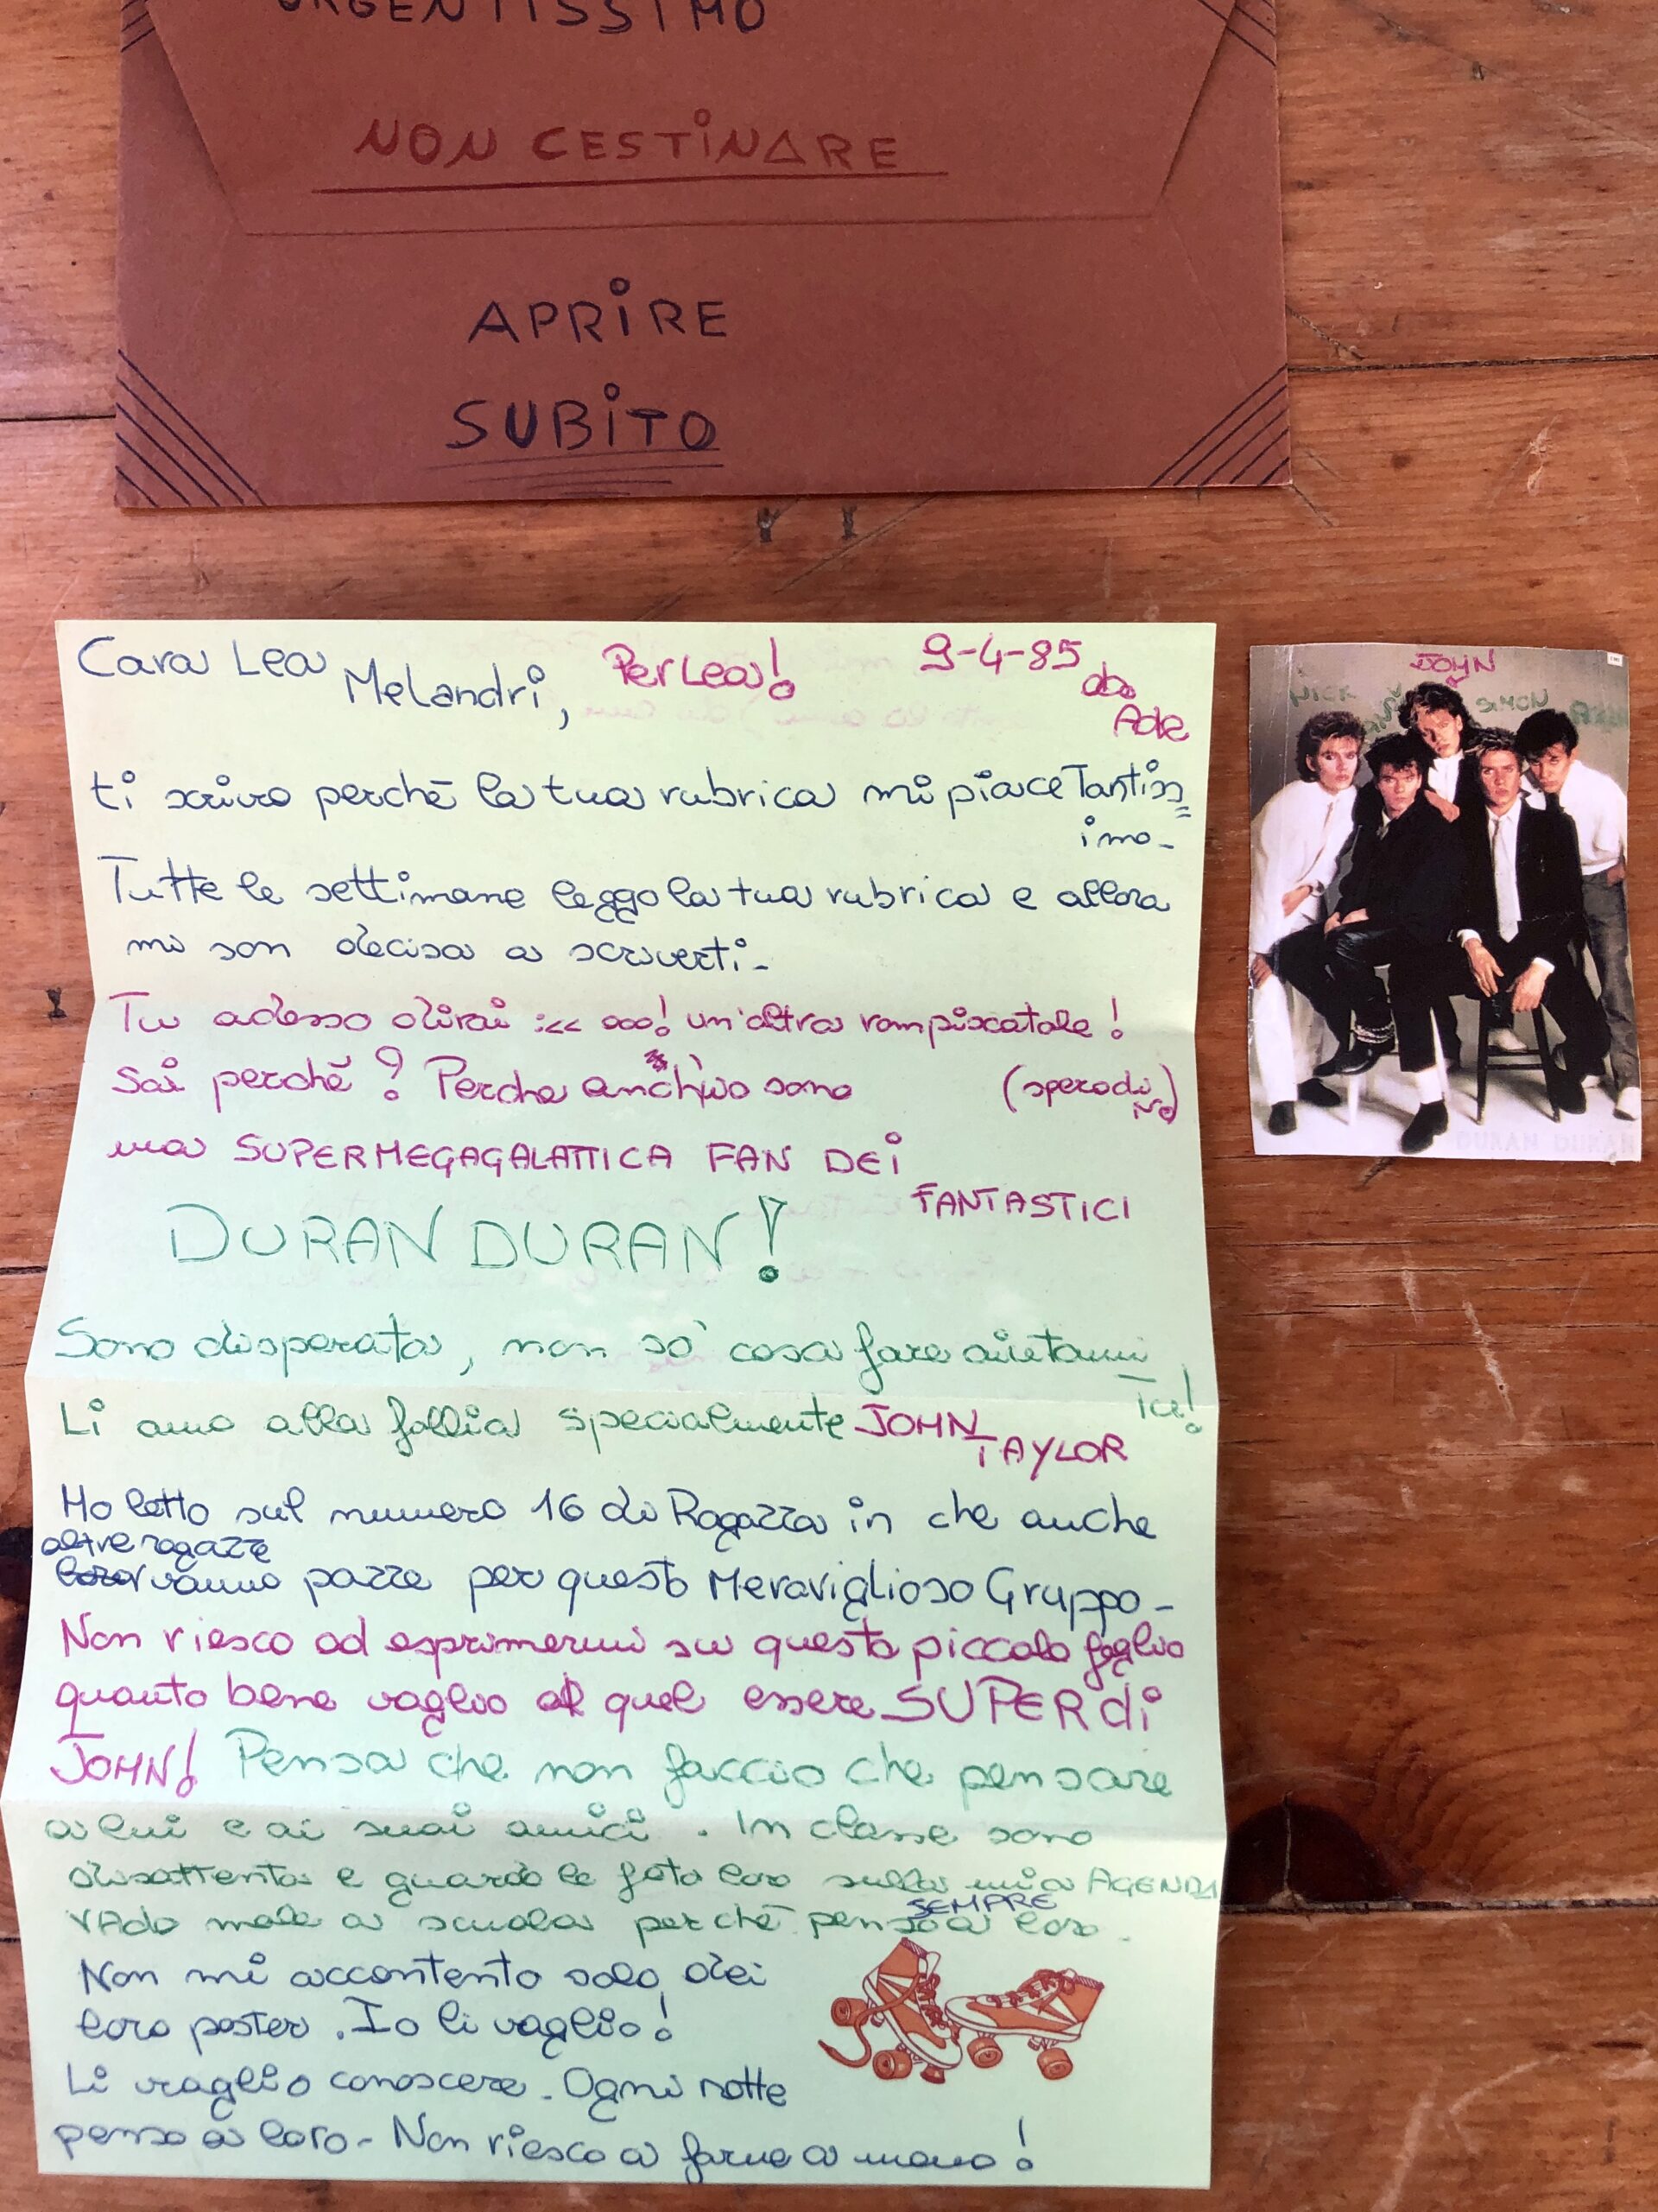 URGENTISSIMO
NON CESTINARE
APRIRE
SUBITO
Cara Lea Melandri, Per Lea! 9-4-85
da Ade
ti scrivo perchè la tua rubrica mi piace Tantiss=
imo-
Tutte le settimane leggo la tua rubrica e allora
mi son decisa a scriverti-
Tu adesso dirai :<< ooo! un'altra rompiscatole!
Sai perchè? Perche anch'io sono (spero di
no)
una SUPERMEGAGALATTICA FAN DEI
FANTASTICI
DURAN DURAN!
Sono disperata, non so' cosa fare aiutami
Li amo alla follia specialmente JOHN
TAYLOR
Ho letto sul numero 16 di Ragazza in che anche
altre ragazze
vanno pazze per questo Meraviglioso Gruppo-
Non riesco ad esprimermi su questo piccolo foglio
quanto bene voglio a quel essere SUPER di
JOHN! Pensa che non faccio che pensare
a lui e ai suoi amici. In classe sono
disattenta e guardo le foto loro sulla mia AGENDA
SEMPRE
VAdo male a scuola perchè penso a loro.
Non mi accontento solo dei
loro poster. Io li voglio!
Li voglio conoscere. Ogni notte
penso a loro- Non riesco a farne a meno!
JOHN
NICK SIMON
DURAN DURAN